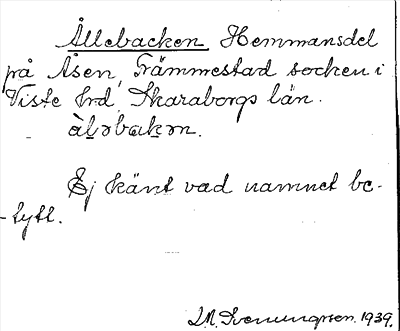 Ållebacken Hemmansdel
på Åsen, Främmestad socken i
Viste hrd, Skaraborgs län.
àl̥əbakən.
Ej känt vad namnet be-
-tytt.
S.M. Svenungsen. 1939.